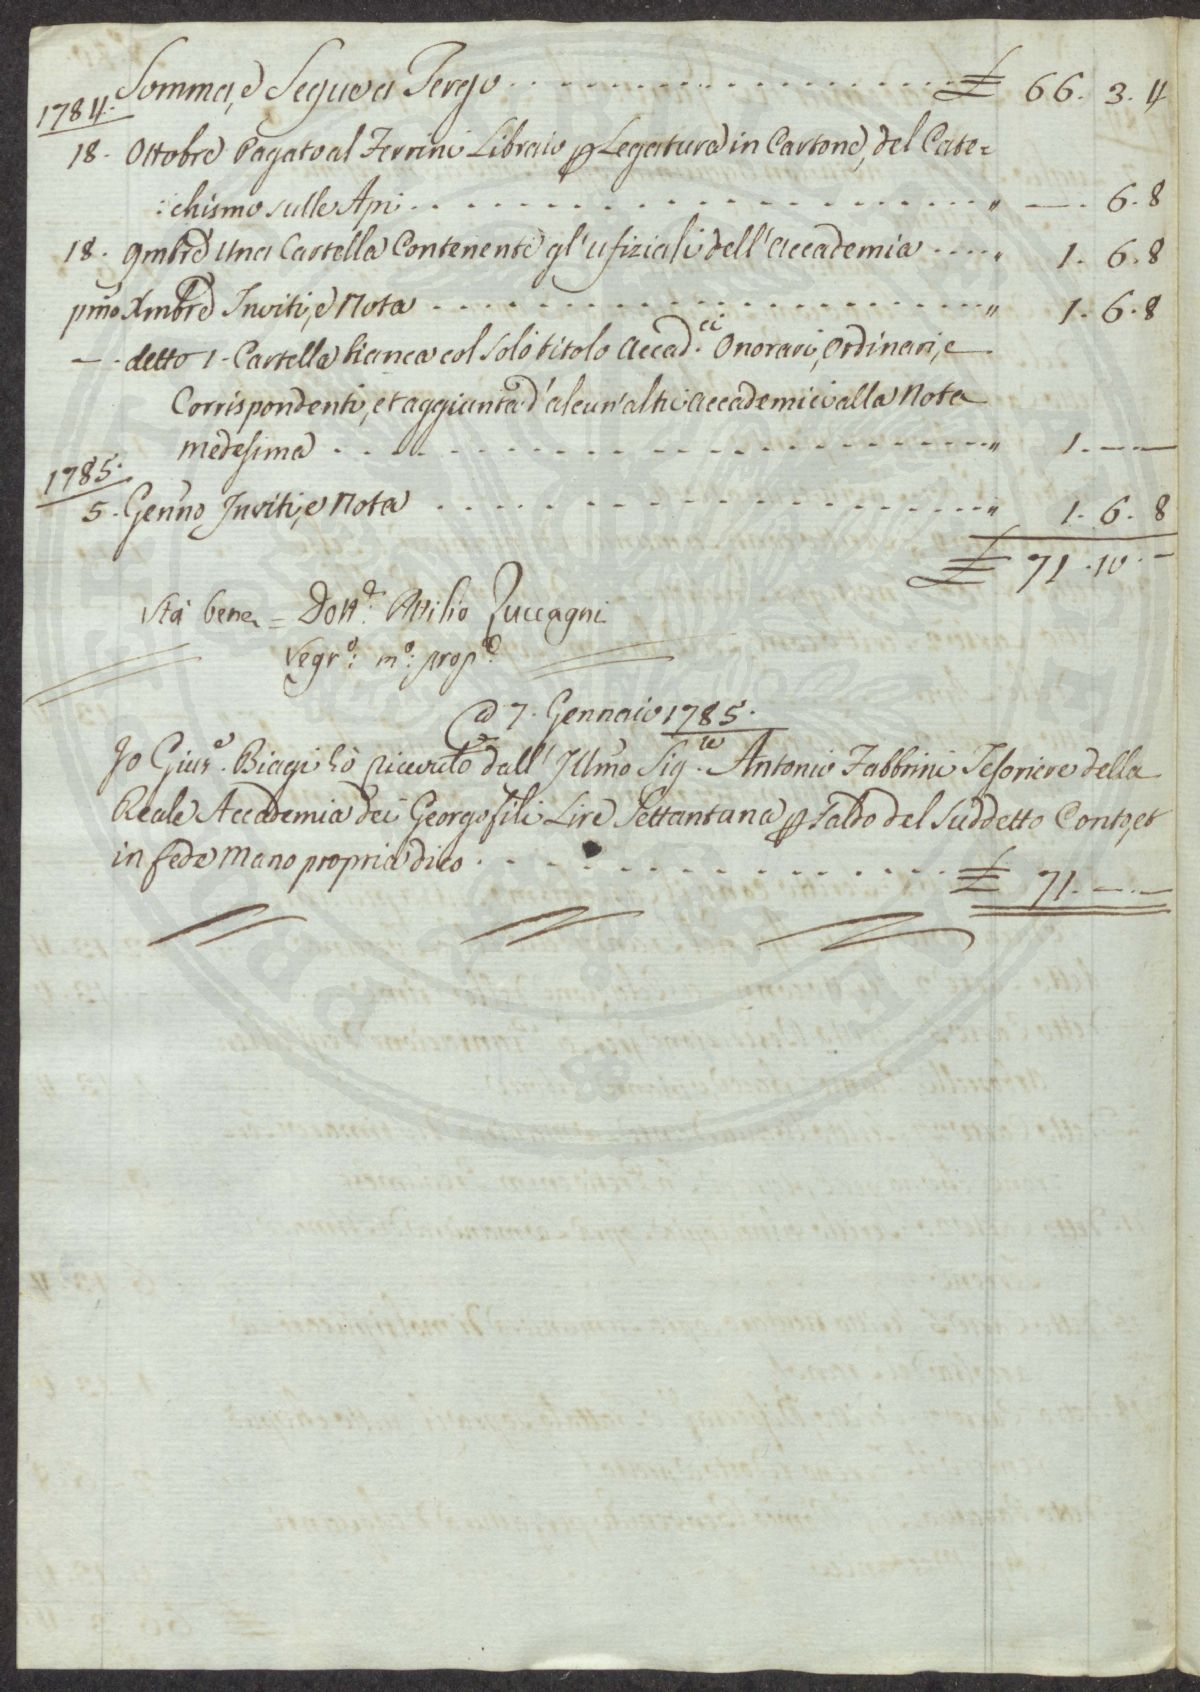 Somma, e Segue a Tergo . . . . . . . . . . . . £ 66. 3. 4
1784.
18. Ottobre Pagato al Ferrini Libraio p Legatura in Cartone, del Cate=
:chismo sulle Api . . . . . . . . . . . . " —. 6. 8
18. 9mbre Una Cartella Contenente gl'ufiziali dell'Accademia . . . . " 1. 6. 8
pmo Xmbre Inviti, e Nota . . . . . . . . . . . . " 1. 6. 8
—. detto 1. Cartella bianca col solo titolo Accad.ci Onorari, Ordinari, e
Corrispondenti, et aggiunta d'alcun'altri Accademici alla Nota
medesima . . . . . . . . . . . . " 1. — —
1785.
5. Genno Inviti, e Nota . . . . . . . . . . . . " 1. 6. 8
£ 71. 10. —
Stà bene = Dott.e Attilio Zuccagni
Segr.o: m.o: prop.a
A 7. Gennaio 1785.
Io Gius.e Biagi hò ricevuto dall' Illmo Sig.re Antonio Fabbrini Tesoriere della
Reale Accademia dei Georgofili Lire Settantuna p Saldo del Suddetto Conto, et
in fede mano propria dico . . . . . . . . . . . . £ 71. — —